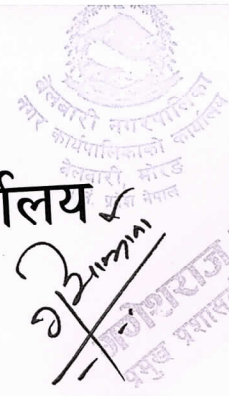 बेलबारी नगरपालिका
नगर कार्यपालिकाको कार्यालय
बेलबारी मोरङ
नेपाल
र्यालय
गेशराज
प्रमुख प्रशास